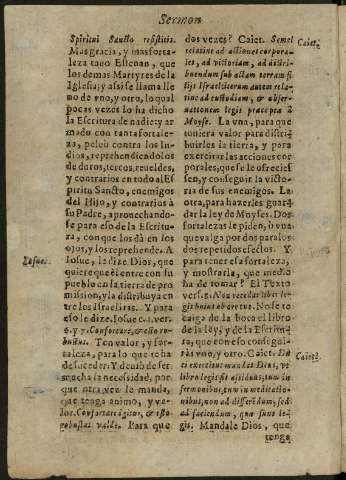 Sermon
Spiritui Sancto resistitis.
Mas gracia, y mas forta-
leza tuuo Esteuan, que
los demas Martyres de la
Iglesia; y assi se llama lle
no de vno, y otro, lo qual
pocas vezes lo ha dicho
la Escritura de nadie: y ar
mado con tanta fortale-
za, peleò contra los Iu-
dios, reprehendiendolos
de duros, tercos, reueldes,
y contrarios en todo al Es
piritu Sancto, enemigos
del Hijo, y contrarios à
su Padre, aprouechando-
se para eso de la Escritu-
ra, con que los dà en los
ojos, y los reprehende. A
Iosue, le dize Dios, que
quiere que èl entre con su
pueblo en la tierra de pro
mission, y la distribuya en
tre los Israelitas. Y para
eso le dize. Iosue c. 1. vers.
6. y 7. Confortare, & esto ro-
bustus. Ten valor, y for-
taleza, para lo que te ha
de suceder: Y deuia de ser
mucha la necesidad, por
que otra vez le manda,
que tenga animo, y va-
lor. Confortare igitur, & esto
robustus valde. Para que
Iosue.
dos vezes? Caiet. Semel
relatiue ad actiones corpora-
les, ad victoriam, ad distri-
buendum sub actam terram fi
lijs Israel: iterum autem rela-
tiue ad custodiam, & obser-
uationem legis praecepta à
Moyse. La vna, para que
tuuiera valor para distri-
buirles la tierra, y para
exercitar las acciones cor
porales, que se le ofrecies
sen, y conseguir la victo-
ria de sus enemigos. La
otra, para hazerles guarda
dar la ley de Moyses. Dos
fortalezas le piden, ò vna
que valga por dos para los
dos repetidos efectos. Y
para tener esa fortaleza,
y mostrarla, que medio
ha de tomar? El Texto
vers. 8. Non recedat liber le-
gis huius ab ore tuo. No se te
caiga de la boca el libro
de la ley, y de la Escritu
ra, que con eso consegui-
ràs vno, y otro. Caiet. Dili
exercitus mandat Deus, vt
libro legis sit assiduus, tum in
sermonibus, tum in meditatio-
nibus, non ad differendum, sed
ad faciendum, quae sunt le-
gis. Mandale Dios, que
tenga
Caiet.
Caiet.